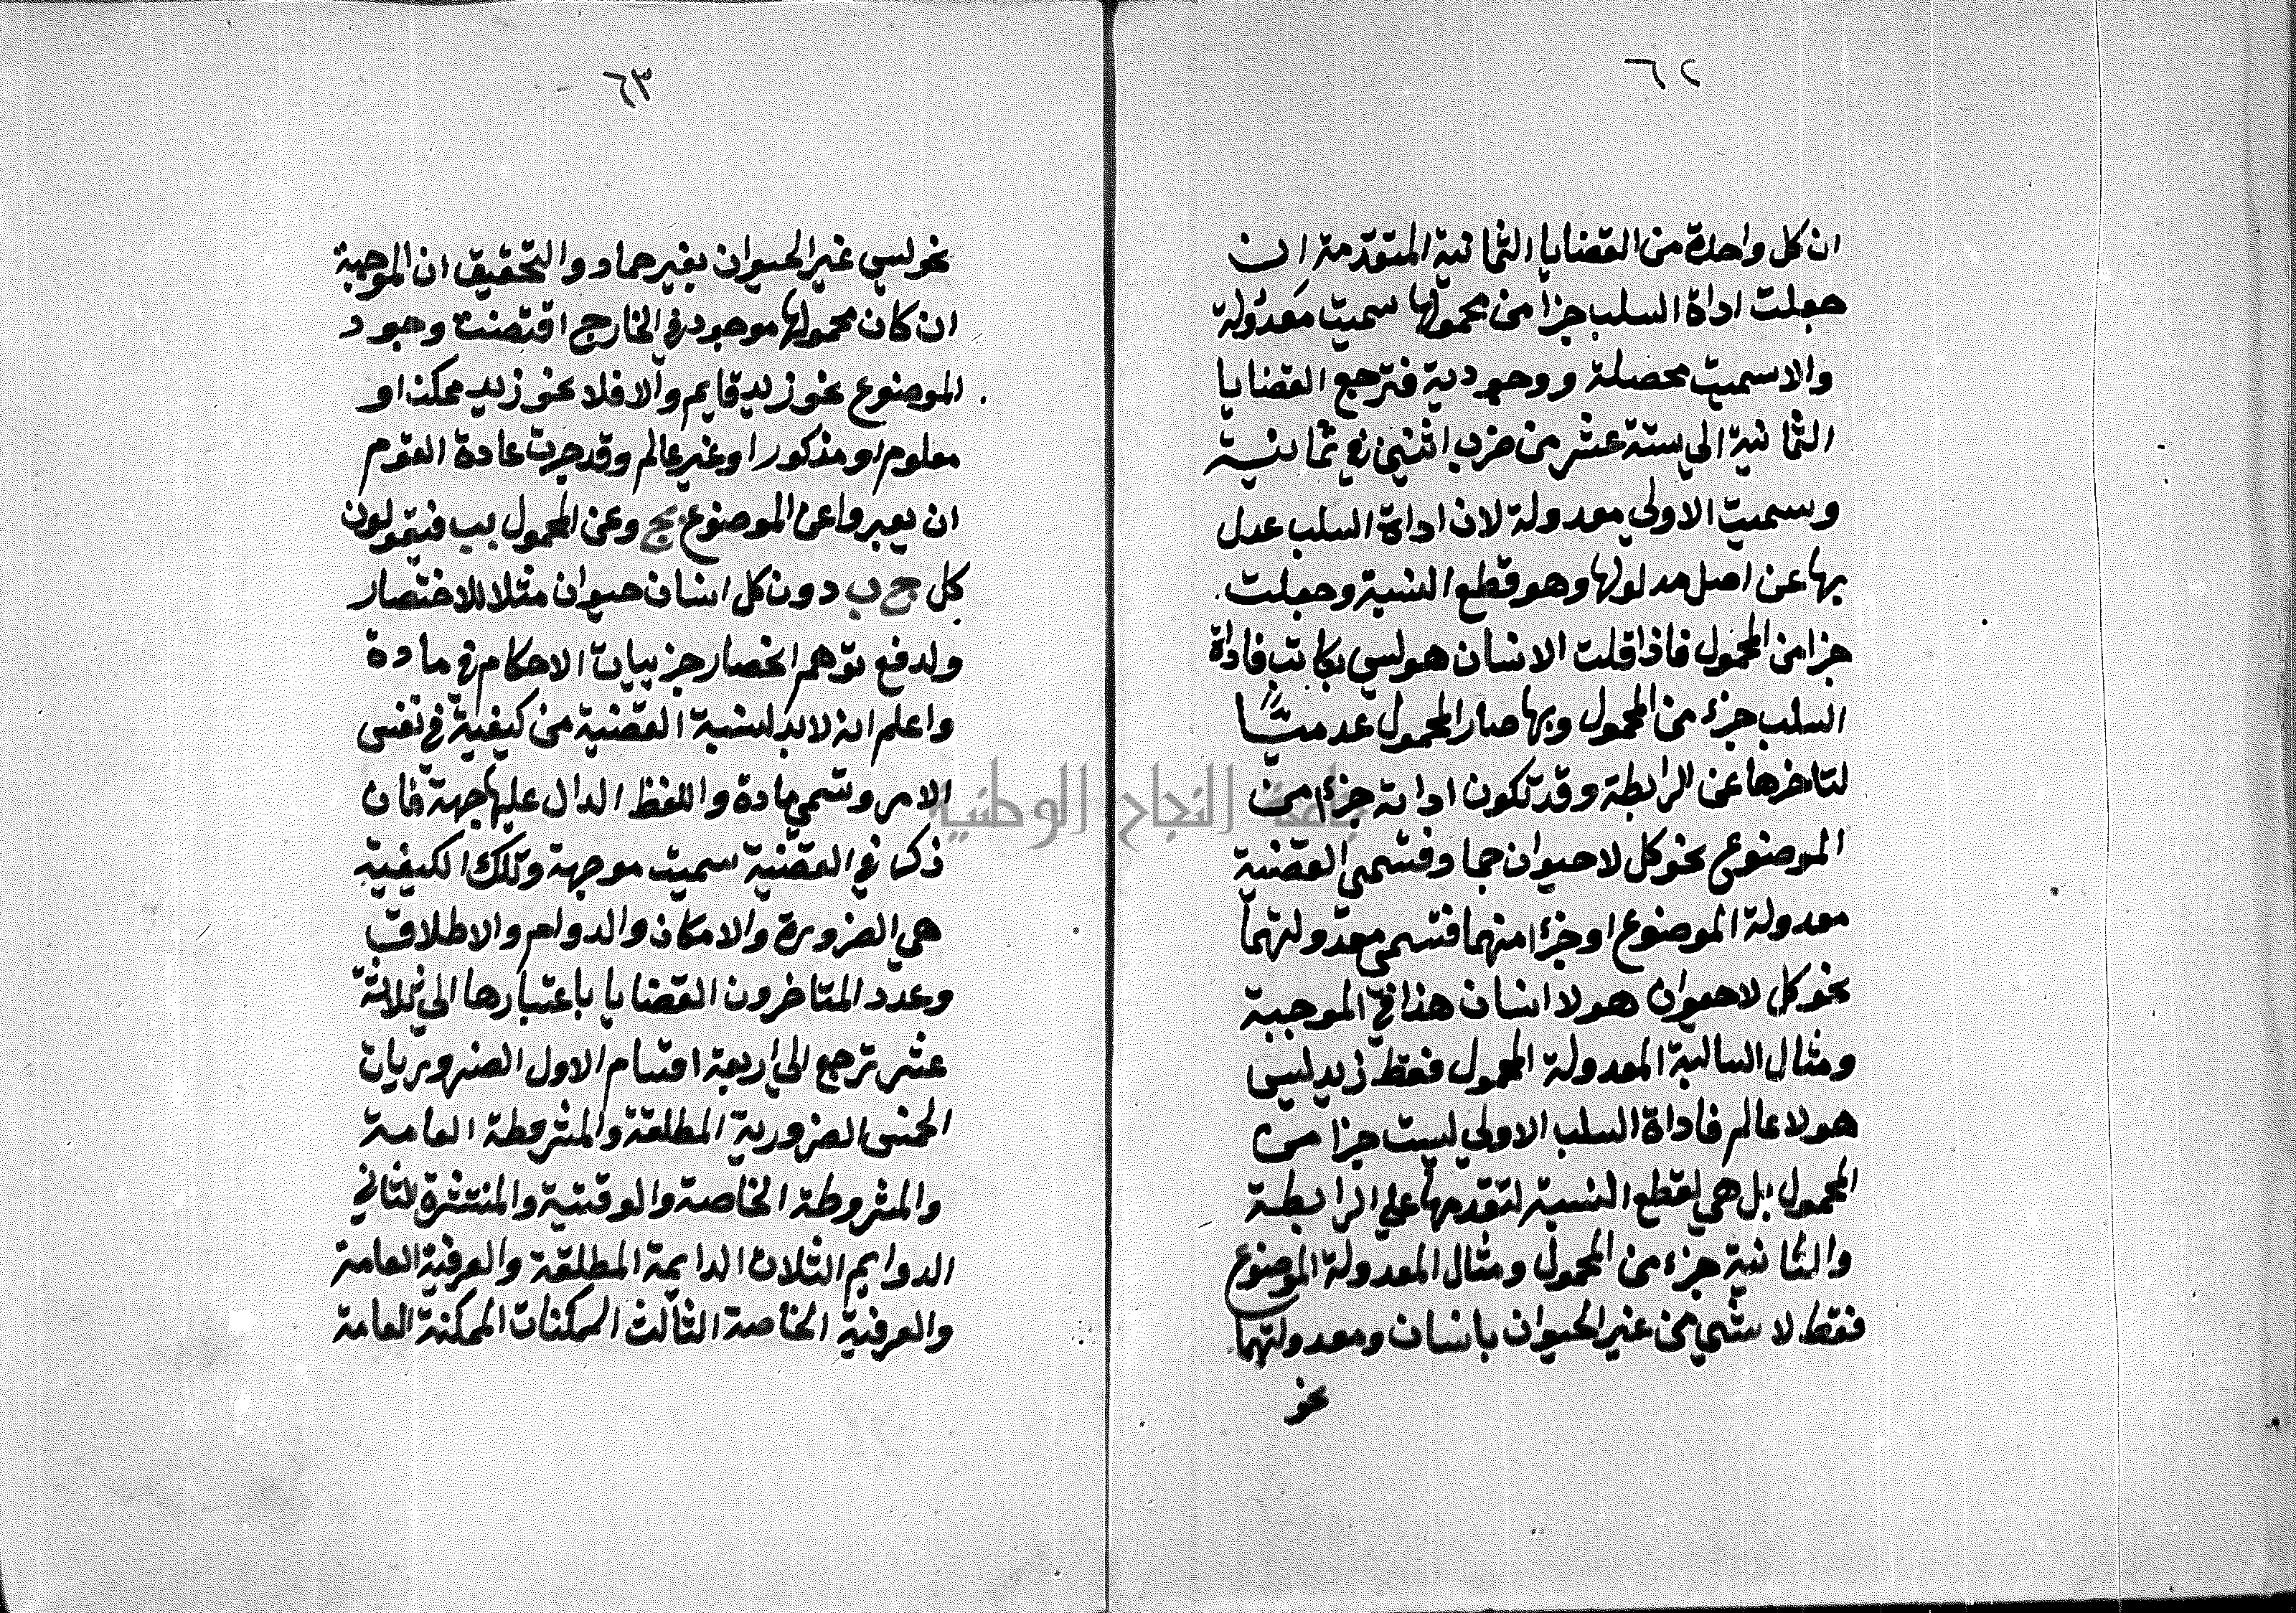 ٦٢
ان كل واحدة من القضايا الثمانية المتقدمة ان
جعلت اداة السلب جزا من محمولها سميت معدولة
والا سميت محصلة ووجودية فترجع القضايا
الثمانية الي ستة عشر من ضرب اثنين في ثمانية
وسميت الاولي معدولة لان اداة السلب عدل
بها عن اصل مدلولها وهو قطع النسبة وجعلت
جزا من المحمول فاذا قلت الانسان هو ليس بكاتب فاداة
السلب جزء من المحمول وبها صار المحمول عدميًّا
لتاخرها عن الرابطة وقد تكون اداته جزءا من
الموضوع نحو كل لا حيوان جماد فتسمى القضية
معدولة الموضوع او جزءا منهما فتسمى معدولتهما
نحو كل لا حيوان هو لا انسان هذا في الموجبة
ومثال السالبة المعدولة المحمول فقط زيد ليس
هو لا عالم فاداة السلب الاولي ليست جزا من
المحمول بل هي لقطع النسبة لتقدمها علي الرابطة
والثانية جزء من المحمول ومثال المعدولة الموضوع
فقط لا شي من غير الحيوان بانسان ومعدولتهما
نحو
٦٣
نحو ليس غير الحيوان بغير جماد والتحقيق ان الموجبة
ان كان محمولها موجود في الخارج اقتضت وجود
الموضوع نحو زيد قايم والا فلا نحو زيد ممكن او
معلوم او مذكور او غير عالم وقد جرت عادة القوم
ان يعبروا عن الموضوع بج وعن المحمول بب فيقولون
كل ج ب دون كل انسان حيوان مثلا للاختصار
ولدفع توهم انحصار جزييات الاحكام في مادة
واعلم انه لا بد لنسبة القضية من كيفية في نفس
الامر وتسمى مادة واللفظ الدال عليها جهة فان
ذكر في القضية سميت موجهة وتلك الكيفية
هي الضرورة والامكان والدوام والاطلاق
وعدد المتاخرون القضايا باعتبارها الي ثلاثة
عشر ترجع الي اربعة اقسام الاول الضروريات
الخمس الضرورية المطلقة والمشروطة العامة
والمشروطة الخاصة والوقتية والمنتشرة الثاني
الدوايم الثلاث الدايمة المطلقة والعرفية العامة
والعرفية الخاصة الثالث الممكنات الممكنة العامة
جامعة النجاح الوطنية